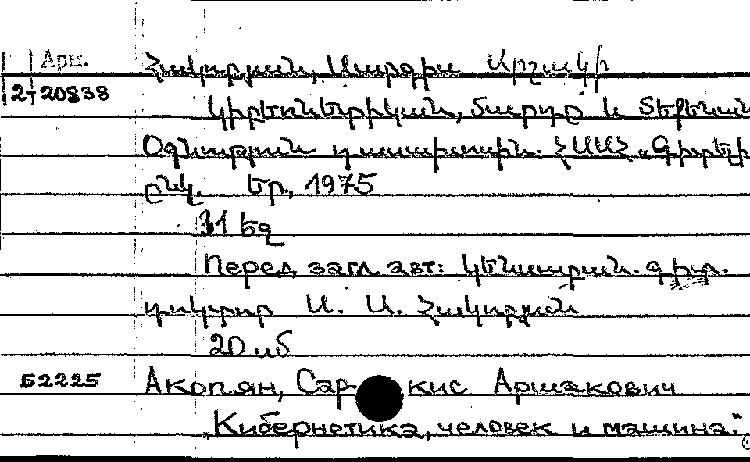 Арм. Հակոբյան, Սարգիս Արշակի
2-20838
կիբեռնետիկան, մարդը և
Օգնություն դասախոսին. ՀՍՍՀ «Գիտելիք
ընկ. Եր., 1975
31 եզ
Перед загл. авт: կենսաբան. գիտ.
դոկտոր Ս. Ա. Հակոբյան
20
Б2225 Акопян, Саркис Аршакович
„Кибернетика, человек и машина."